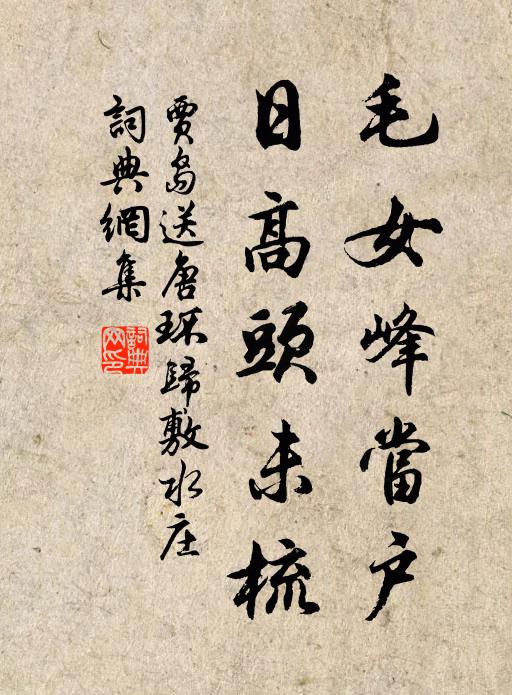 毛女峰當户
日高頭未梳
賈島送唐環歸敷水庄
詞典網集
詞典
网印